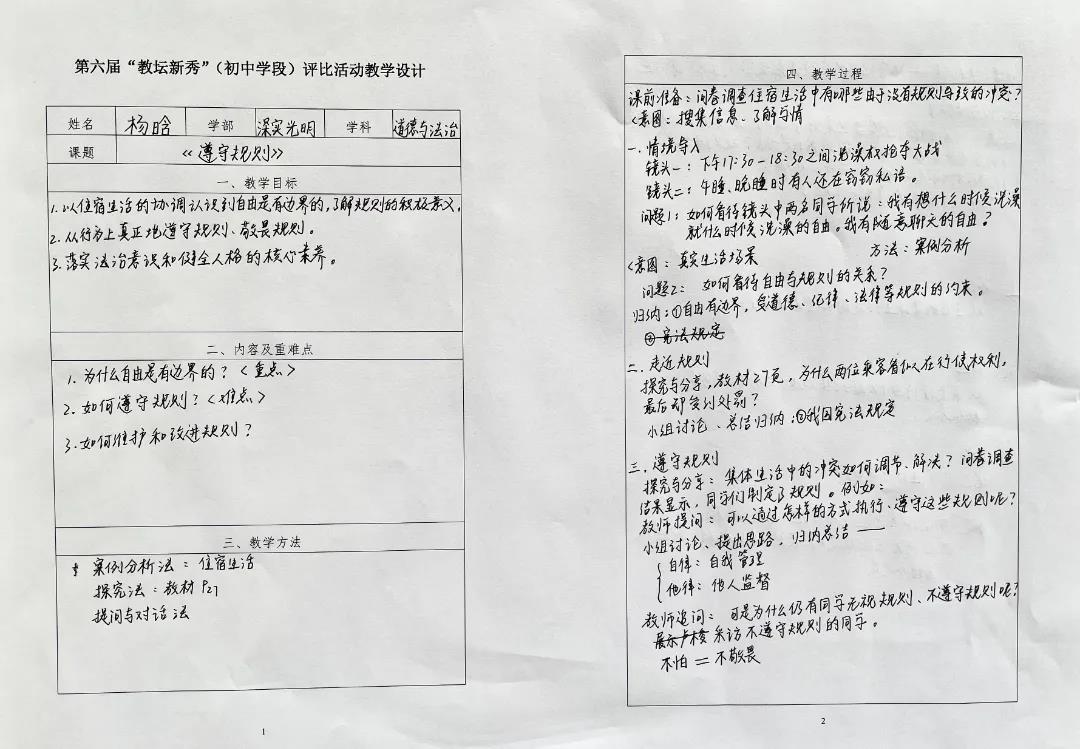 第六届“教坛新秀”（初中学段）评比活动教学设计
姓名 杨晗 学部 深实光明 学科 道德与法治
课题 《遵守规则》
一、教学目标
1. 以住宿生活的协调认识到自由是有边界的，了解规则的积极意义，
2. 从行为上真正地遵守规则、敬畏规则。
3. 落实法治意识和健全人格的核心素养。
二、内容及重难点
1. 为什么自由是有边界的？<重点>
2. 如何遵守规则？<难点>
3. 如何维护和改进规则？
三、教学方法
案例分析法：住宿生活
探究法：教材P27
提问与对话法
1
四、教学过程
课前准备：问卷调查住宿生活中有哪些由于没有规则导致的冲突？
<意图：搜集信息、了解与情
一. 情境导入
镜头一：下午17:30-18:30之间洗澡权抢夺大战
镜头二：午睡、晚睡时有人还在窃窃私语。
问题1：如何看待镜头中两名同学所说：我有想什么时候洗澡
就什么时候洗澡的自由。我有随意聊天的自由？
<意图：真实生活场景 方法：案例分析
问题2：如何看待自由与规则的关系？
归纳：①自由有边界，受道德、纪律、法律等规则的约束。
② 宪法规定
二. 走近规则
探究与分享，教材27页，为什么两位乘客看似在行使权利，
最后却受到处罚？
小组讨论、总结归纳：②我国宪法规定
三. 遵守规则
探究与分享：集体生活中的冲突如何调节、解决？问卷调查
结果显示，同学们制定了规则。例如：
教师提问：可以通过怎样的方式执行、遵守这些规则呢？
小组讨论、提出思路，归纳总结——
自律：自我管理
他律：他人监督
教师追问：可是为什么仍有同学无视规则、不遵守规则呢？
采访不遵守规则的同学。
不怕＝不敬畏
2